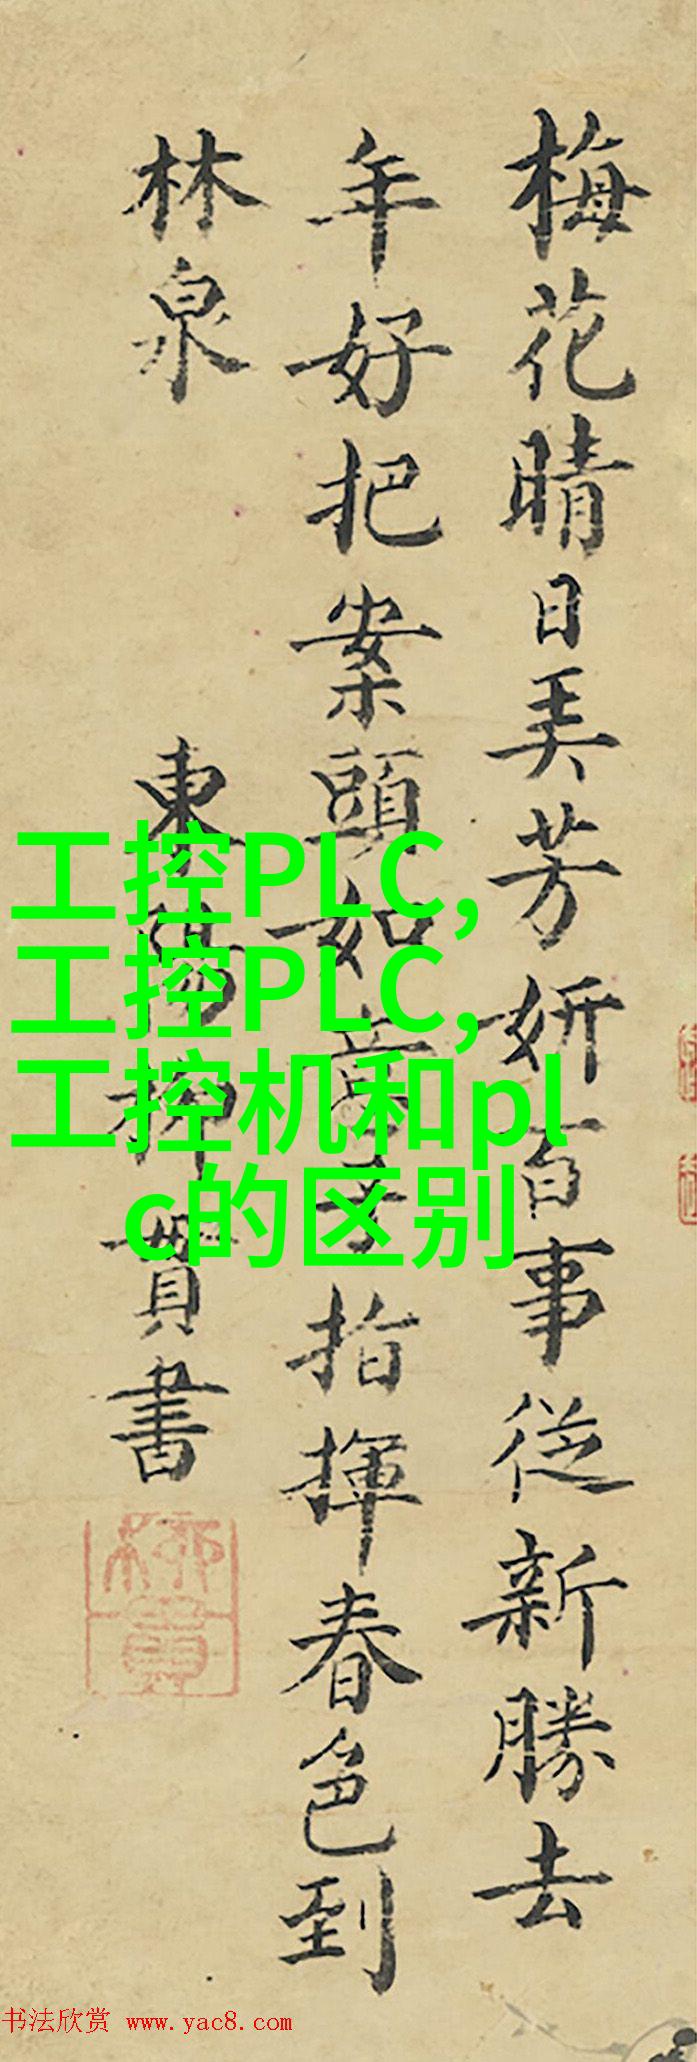 梅花晴日美芳妍百事從新勝去
年好把案頭如意子指揮春色到
林泉
東陽柳貫書
柳貫
工控PLC,
工控PLC,
工控机和pl
c的区别
书法欣赏 www.yac8.com